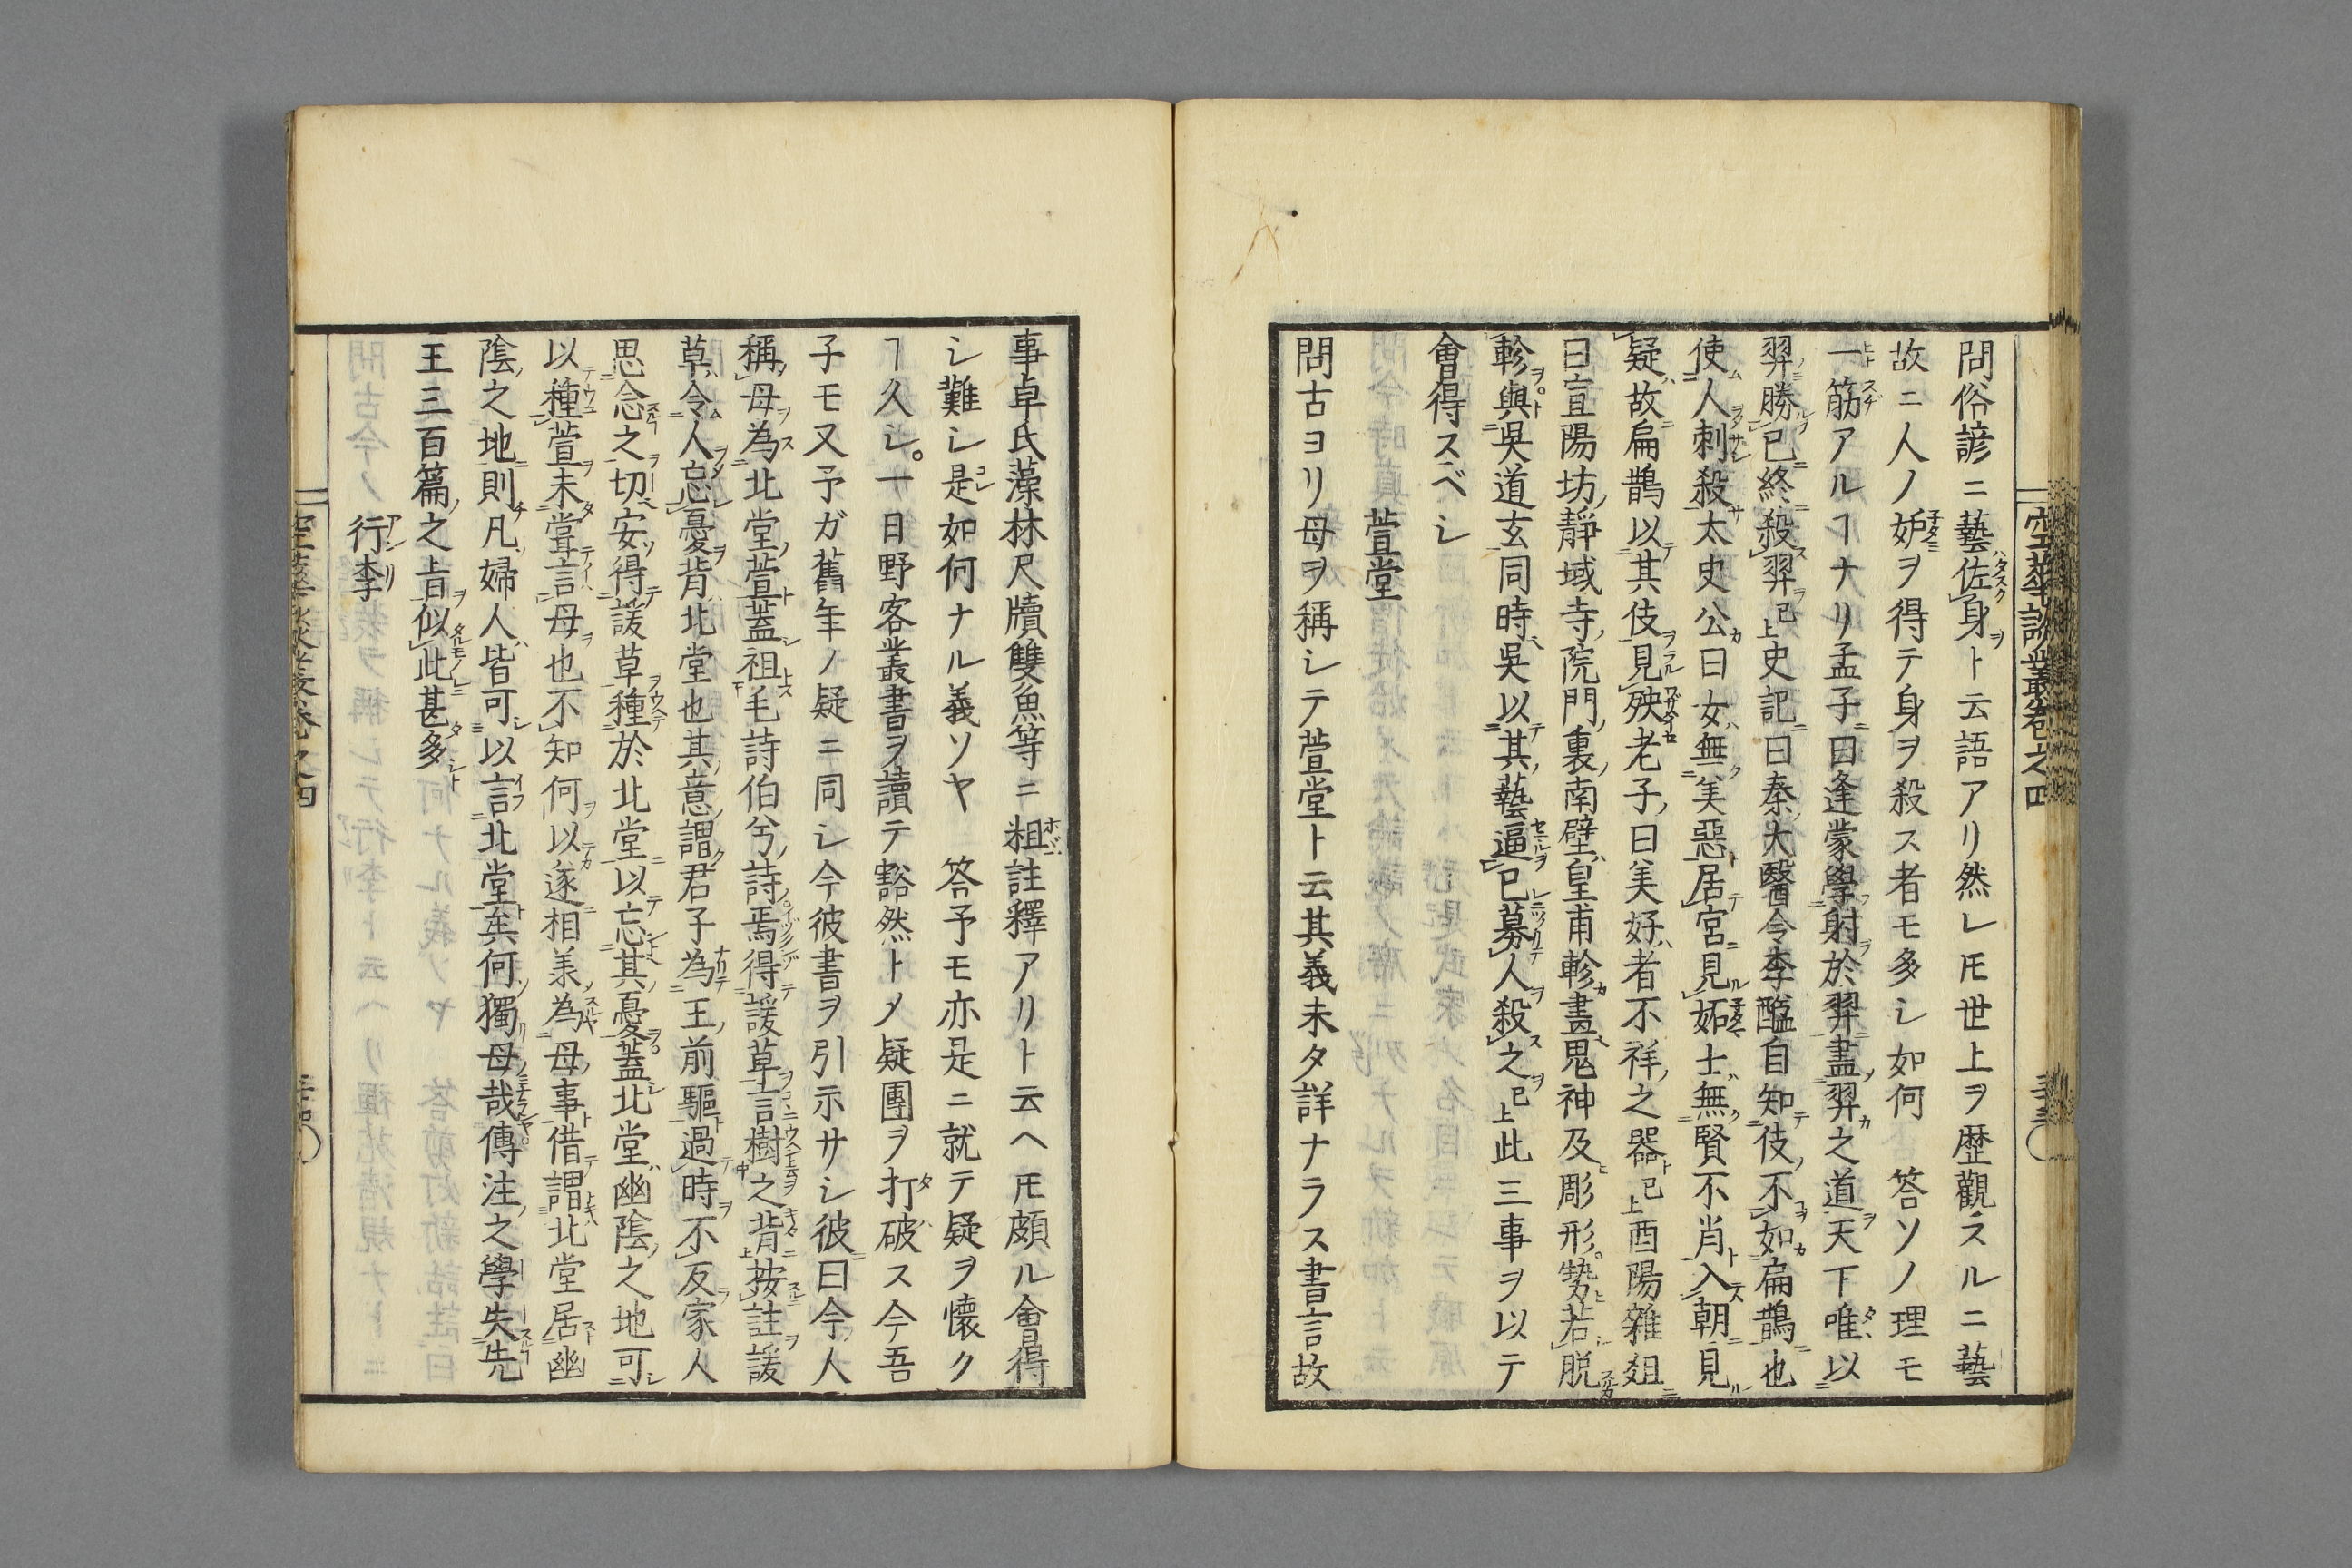 問俗諺ニ藝佐身ト云語アリ然レ𪜈世上ヲ歴觀スルニ藝
故ニ人ノ妒ヲ得テ身ヲ殺ス者モ多シ如何　答ソノ理モ
一筋アルヿナリ孟子曰逢蒙學射於羿盡羿之道天下唯以
羿勝已終殺羿已上史記曰秦大醫令李醯自知伎不如扁鵲也
使人刺殺太史公曰女無美惡居宮見妬士無賢不肖入朝見
疑故扁鵲以其伎見殃老子曰美好者不祥之器已上酉陽雜俎
曰宣陽坊靜域寺院門裏南壁皇甫軫畫鬼神及彫形勢若脱
軫與吳道玄同時吳以其藝逼已募人殺之已上此三事ヲ以テ
會得スベシ
萱堂
問古ヨリ母ヲ稱シテ萱堂ト云其義未タ詳ナラス書言故
事卓氏藻林尺牘雙魚等ニ粗註釋アリト云ヘ𪜈頗ル會得
シ難シ是如何ナル義ソヤ　答予モ亦是ニ就テ疑ヲ懷ク
ヿ久シ一日野客叢書ヲ讀テ豁然トメ疑團ヲ打破ス今吾
子モ又予ガ舊年ノ疑ニ同シ今彼書ヲ引示サシ彼曰今人
稱母為北堂萱蓋祖毛詩伯兮詩焉得諼草言樹之背按註諼
草令人忘憂背北堂也其意謂君子為王前驅過時不反家人
思念之切安得諼草種於北堂以忘其憂蓋北堂幽陰之地可
以種萱未嘗言母也不知何以遂相羕為母事借謂北堂居幽
陰之地則凡婦人皆可以言北堂矣何獨母哉傳注之學失先
王三百篇之旨似此甚多
行李
空華談叢卷之四